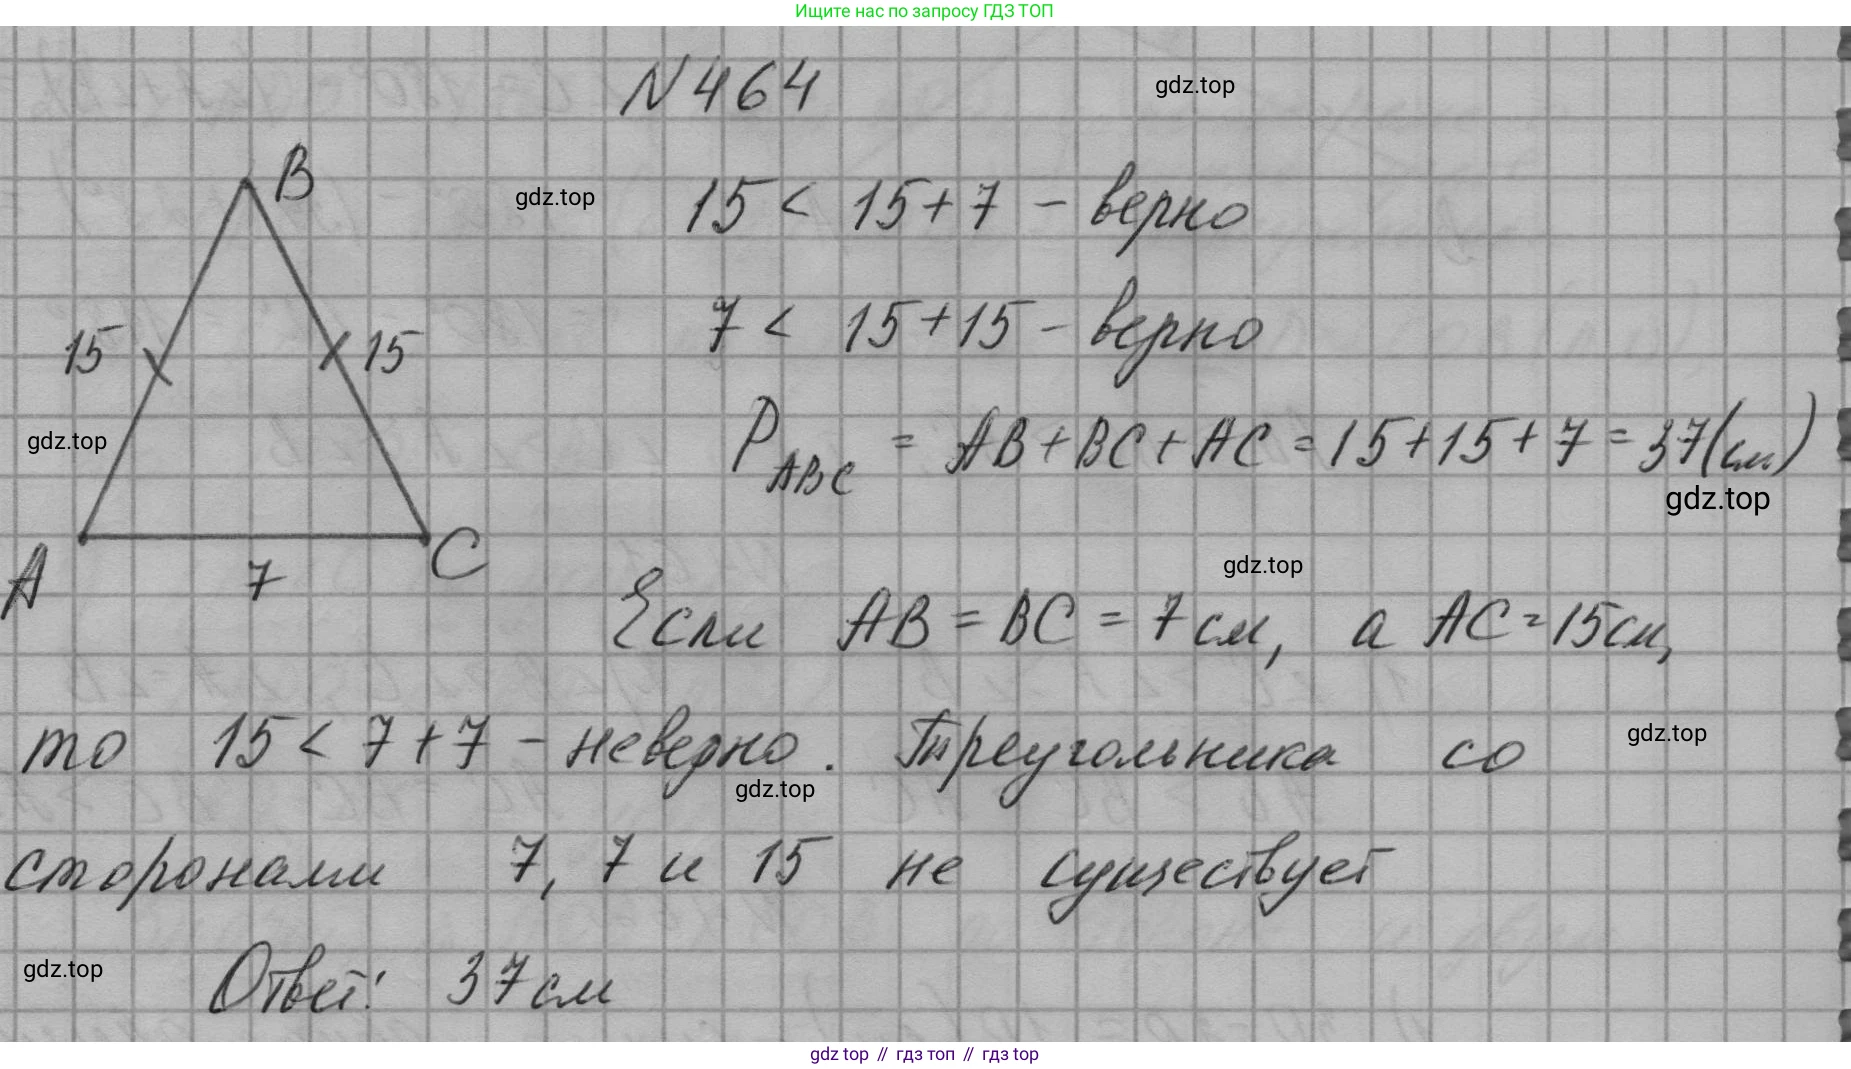 Ищите нас по запросу ГДЗ ТОП
N 464
gdz.top
B
gdz.top
15 < 15+7 - верно
7 < 15+15 - верно
15
15
gdz.top
P ABC = AB+BC+AC = 15+15+7 = 37(см)
gdz.top
A
7
C
gdz.top
Если AB = BC = 7 см, а AC = 15 см,
то 15 < 7+7 - неверно. Треугольника со
gdz.top
gdz.top
сторонами 7, 7 и 15 не существует
gdz.top
Ответ: 37 см
gdz top // гдз топ // гдз top